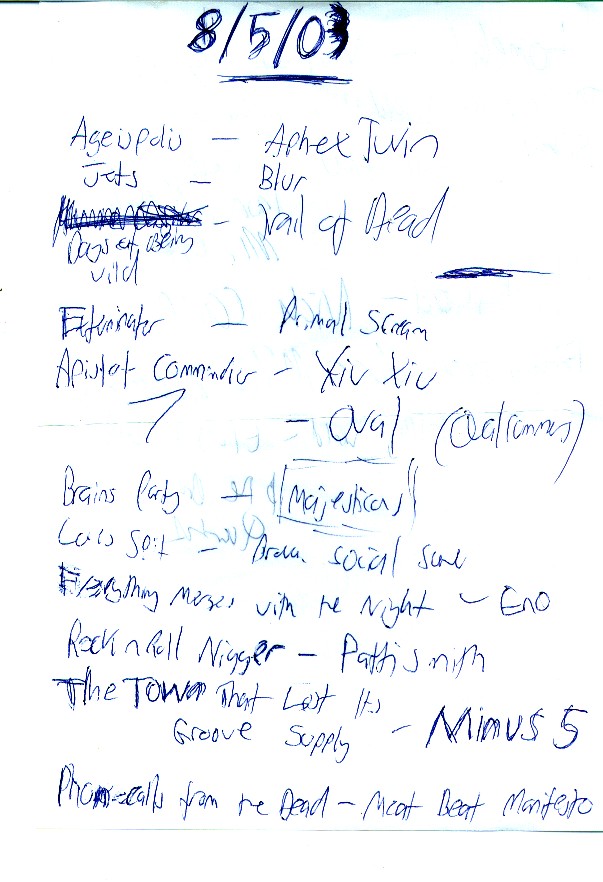 8/5/03
Ageispolis — Aphex Twin
Jets — Blur
— Trail of Dead
Days of Being
Wild
Exterminator — Primal Scream
Apistat Commander — Xiu Xiu
7 — Oval (Ovalcommers)
Brains Party — Majesticons
Lovers Spit — Broken Social Scene
Everything Merges with the Night — Eno
Rock n Roll Nigger — Patti Smith
The Town That Lost Its
Groove Supply — Minus 5
Phonecalls from the Dead — Meat Beat Manifesto